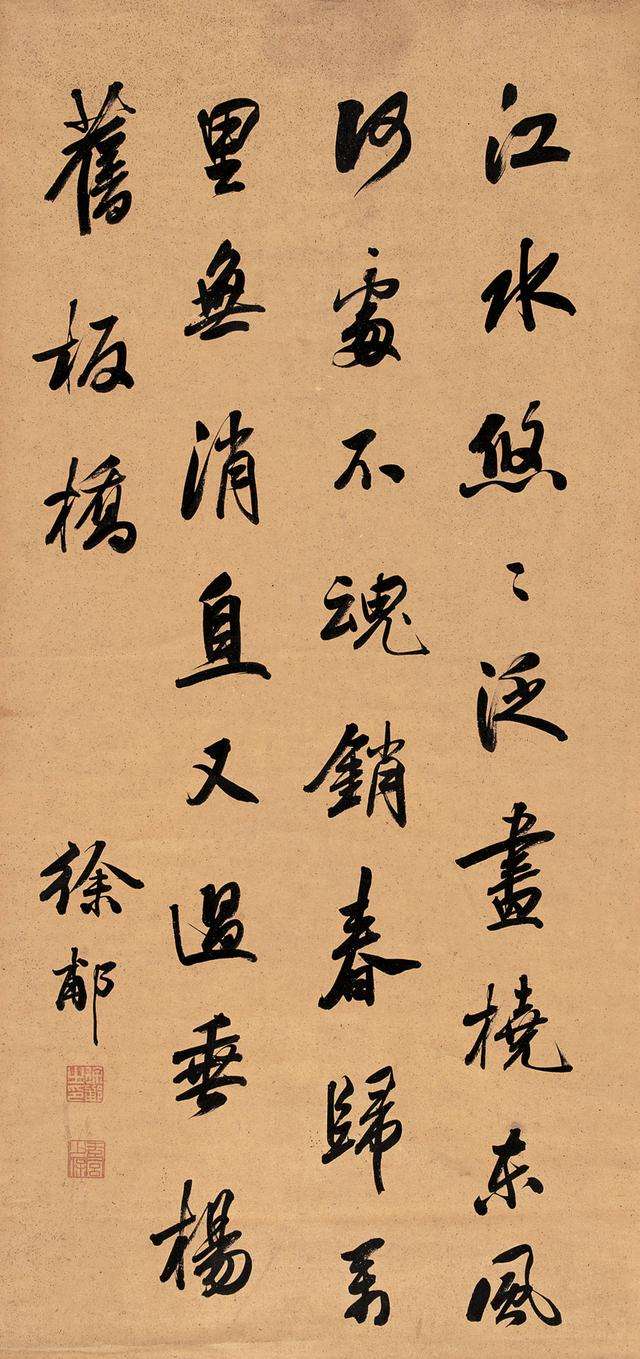 江水悠〻泛畫橈東風
何處不魂銷春歸萬
里無消息又過垂楊
舊板橋
徐郙